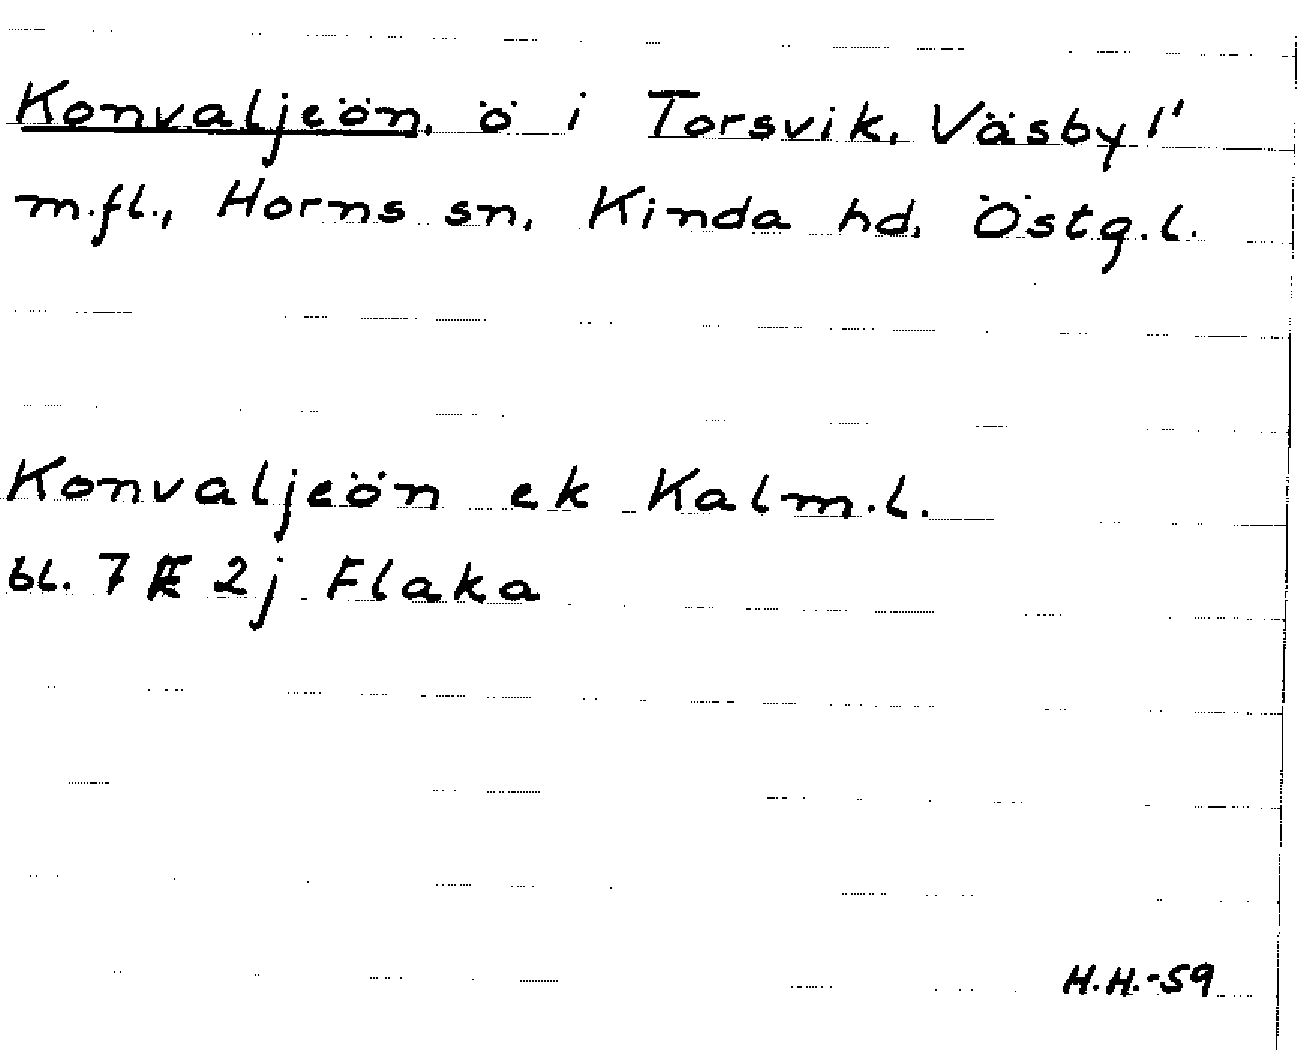 Konvaljeön, ö i Torsvik, Väsby 1¹
m.fl., Horns sn, Kinda hd, Östg.l.
Konvaljeön ek Kalm.l.
bl. 7 F 2j Flaka
H.H.-59